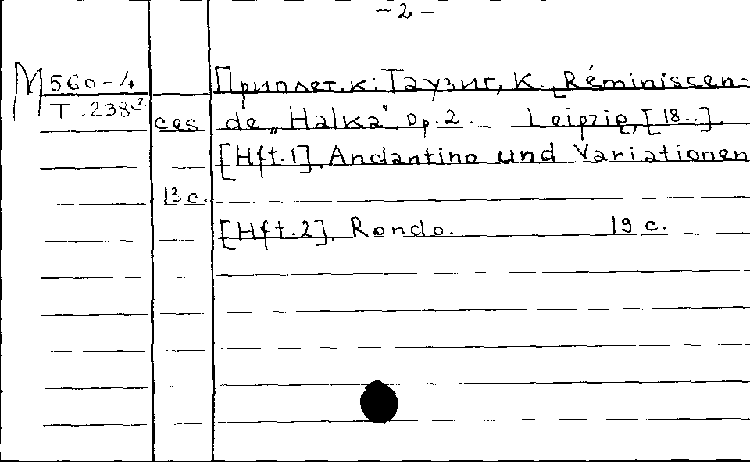 -2-
М 560-4 Приплет. к: Таузиг, К. Réminiscen-
Т.238 ces de „Halka". Op. 2. Leipzig, [18..].
[Hft.1]. Andantino und Variationen
13 c.
[Hft.2]. Rondo. 19 c.